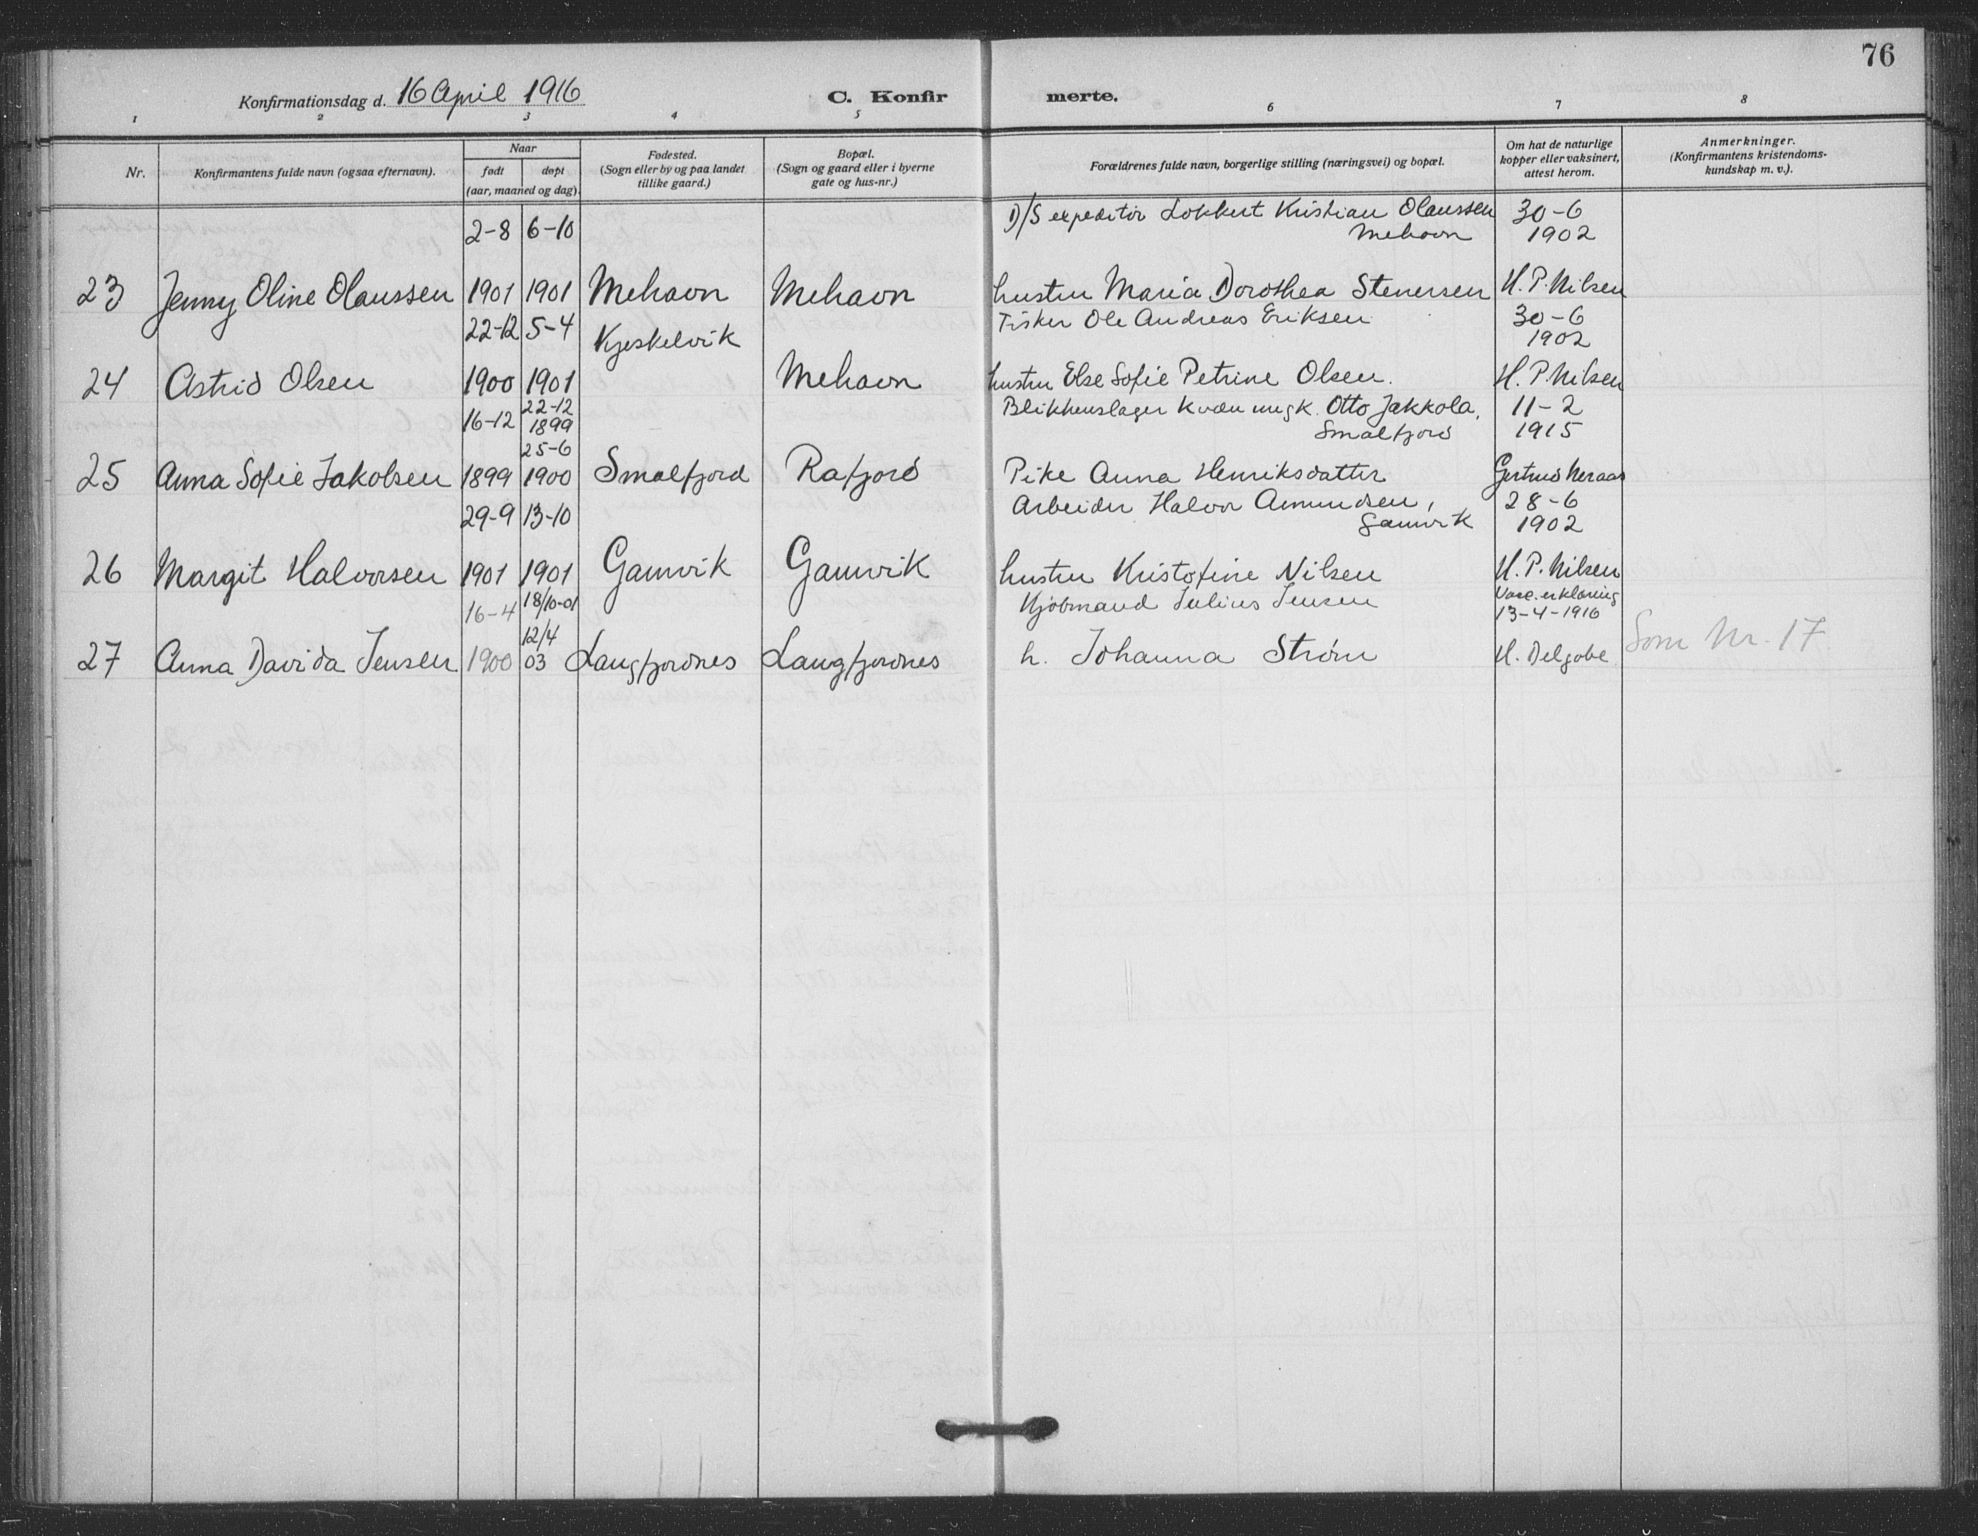 76
Konfirmationsdag d. 16 April 1916
C. Konfirmerte.
1 2 3 4 5 6 7 8
Nr.
Konfirmantens fulde navn (ogsaa efternavn).
Naar
født døpt
(aar, maaned og dag).
Fødested.
(Sogn eller by og paa landet
tillike gaard.)
Bopæl.
(Sogn og gaard eller i byerne
gate og hus-nr.)
Forældrenes fulde navn, borgerlige stilling (næringsvei) og bopæl.
Om hat de naturlige
kopper eller vaksinert,
attest herom.
Anmerkninger.
(Konfirmantens kristendoms-
kundskap m. v.).
2-8 6-10 D/S expeditör Lokkert Kristian Olaussen 30-6
Mehavn 1902
23 Jenny Oline Olaussen 1901 1901 Mehavn Mehavn hustru Maria Dorothea Stenersen H. P. Nilsen
22-12 5-4 Kjeskelvik Fisker Ole Andreas Eriksen 30-6
1902
24 Astrid Olsen 1900 1901 Mehavn hustru Else Sofie Petrine Olsen. H. P. Nilsen
16-12 22-12 Blikkenslager Kvæn ungk. Otto Jakkola, 11-2
1899 Smalfjord 1915
25-6
25 Anna Sofie Jakobsen 1899 1900 Smalfjord Rafjord Pike Anna Henriksdatter Gertrud Neraas
29-9 13-10 Arbeider Halvor Amundsen, 28-6
Gamvik 1902
26 Margit Halvorsen 1901 1901 Gamvik Gamvik hustru Kristofine Nilsen H. P. Nilsen
16-4 18/10-01 Kjøbmand Julius Jensen Vacc. erklæring
13-4-1916
12/4
27 Anna Davida Jensen 1900 03 Langfjordnes Langfjordnes h. Johanna Strøm H. Delgobe Som Nr. 17